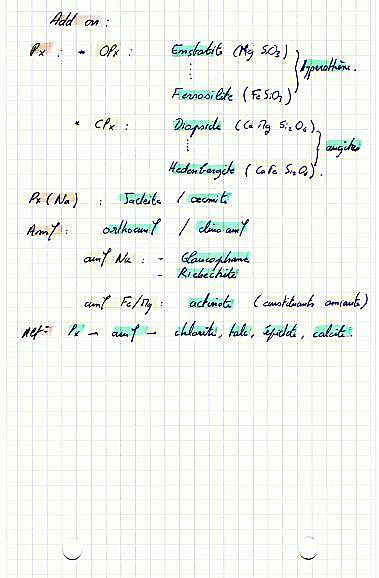 Add on :
Px : * OPx : Enstatite (Mg SiO3)
⋮ } hypersthène.
Ferrosilite (FeSiO3)
* CPx : Diopside (Ca Mg Si2 O6)
⋮ } augites
Hedenbergite (CaFe Si2O6).
Px (Na) : Jadeite / aegirine
Amf : orthoamf / clinoamf
amf Na : - Glaucophane
- Riebeckite
amf Fe/Mg : actinote (constituants amiante)
Alt° Px → amf → chlorite, talc, épidote, calcite.